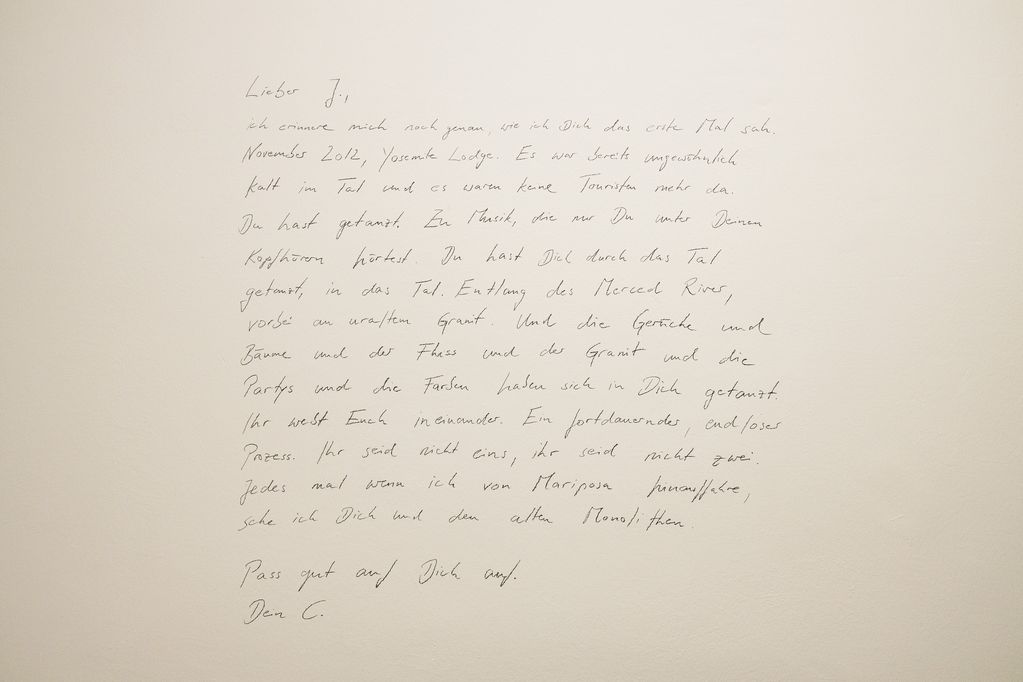 Lieber J.,
ich erinnere mich noch genau, wie ich Dich das erste Mal sah.
November 2012, Yosemite Lodge. Es war bereits ungewöhnlich
kalt im Tal und es waren keine Touristen mehr da.
Du hast getanzt. Zu Musik, die nur Du unter Deinen
Kopfhörern hörtest. Du hast Dich durch das Tal
getanzt, in das Tal. Entlang des Merced River,
vorbei an uraltem Granit. Und die Gerüche und
Bäume und der Fluss und der Granit und die
Partys und die Farben haben sich in Dich getanzt.
Ihr webt Euch ineinander. Ein fortdauernder, endloser
Prozess. Ihr seid nicht eins, ihr seid nicht zwei.
Jedes mal wenn ich von Mariposa hinauffahre,
sehe ich Dich und den alten Monolithen.
Pass gut auf Dich auf.
Dein C.